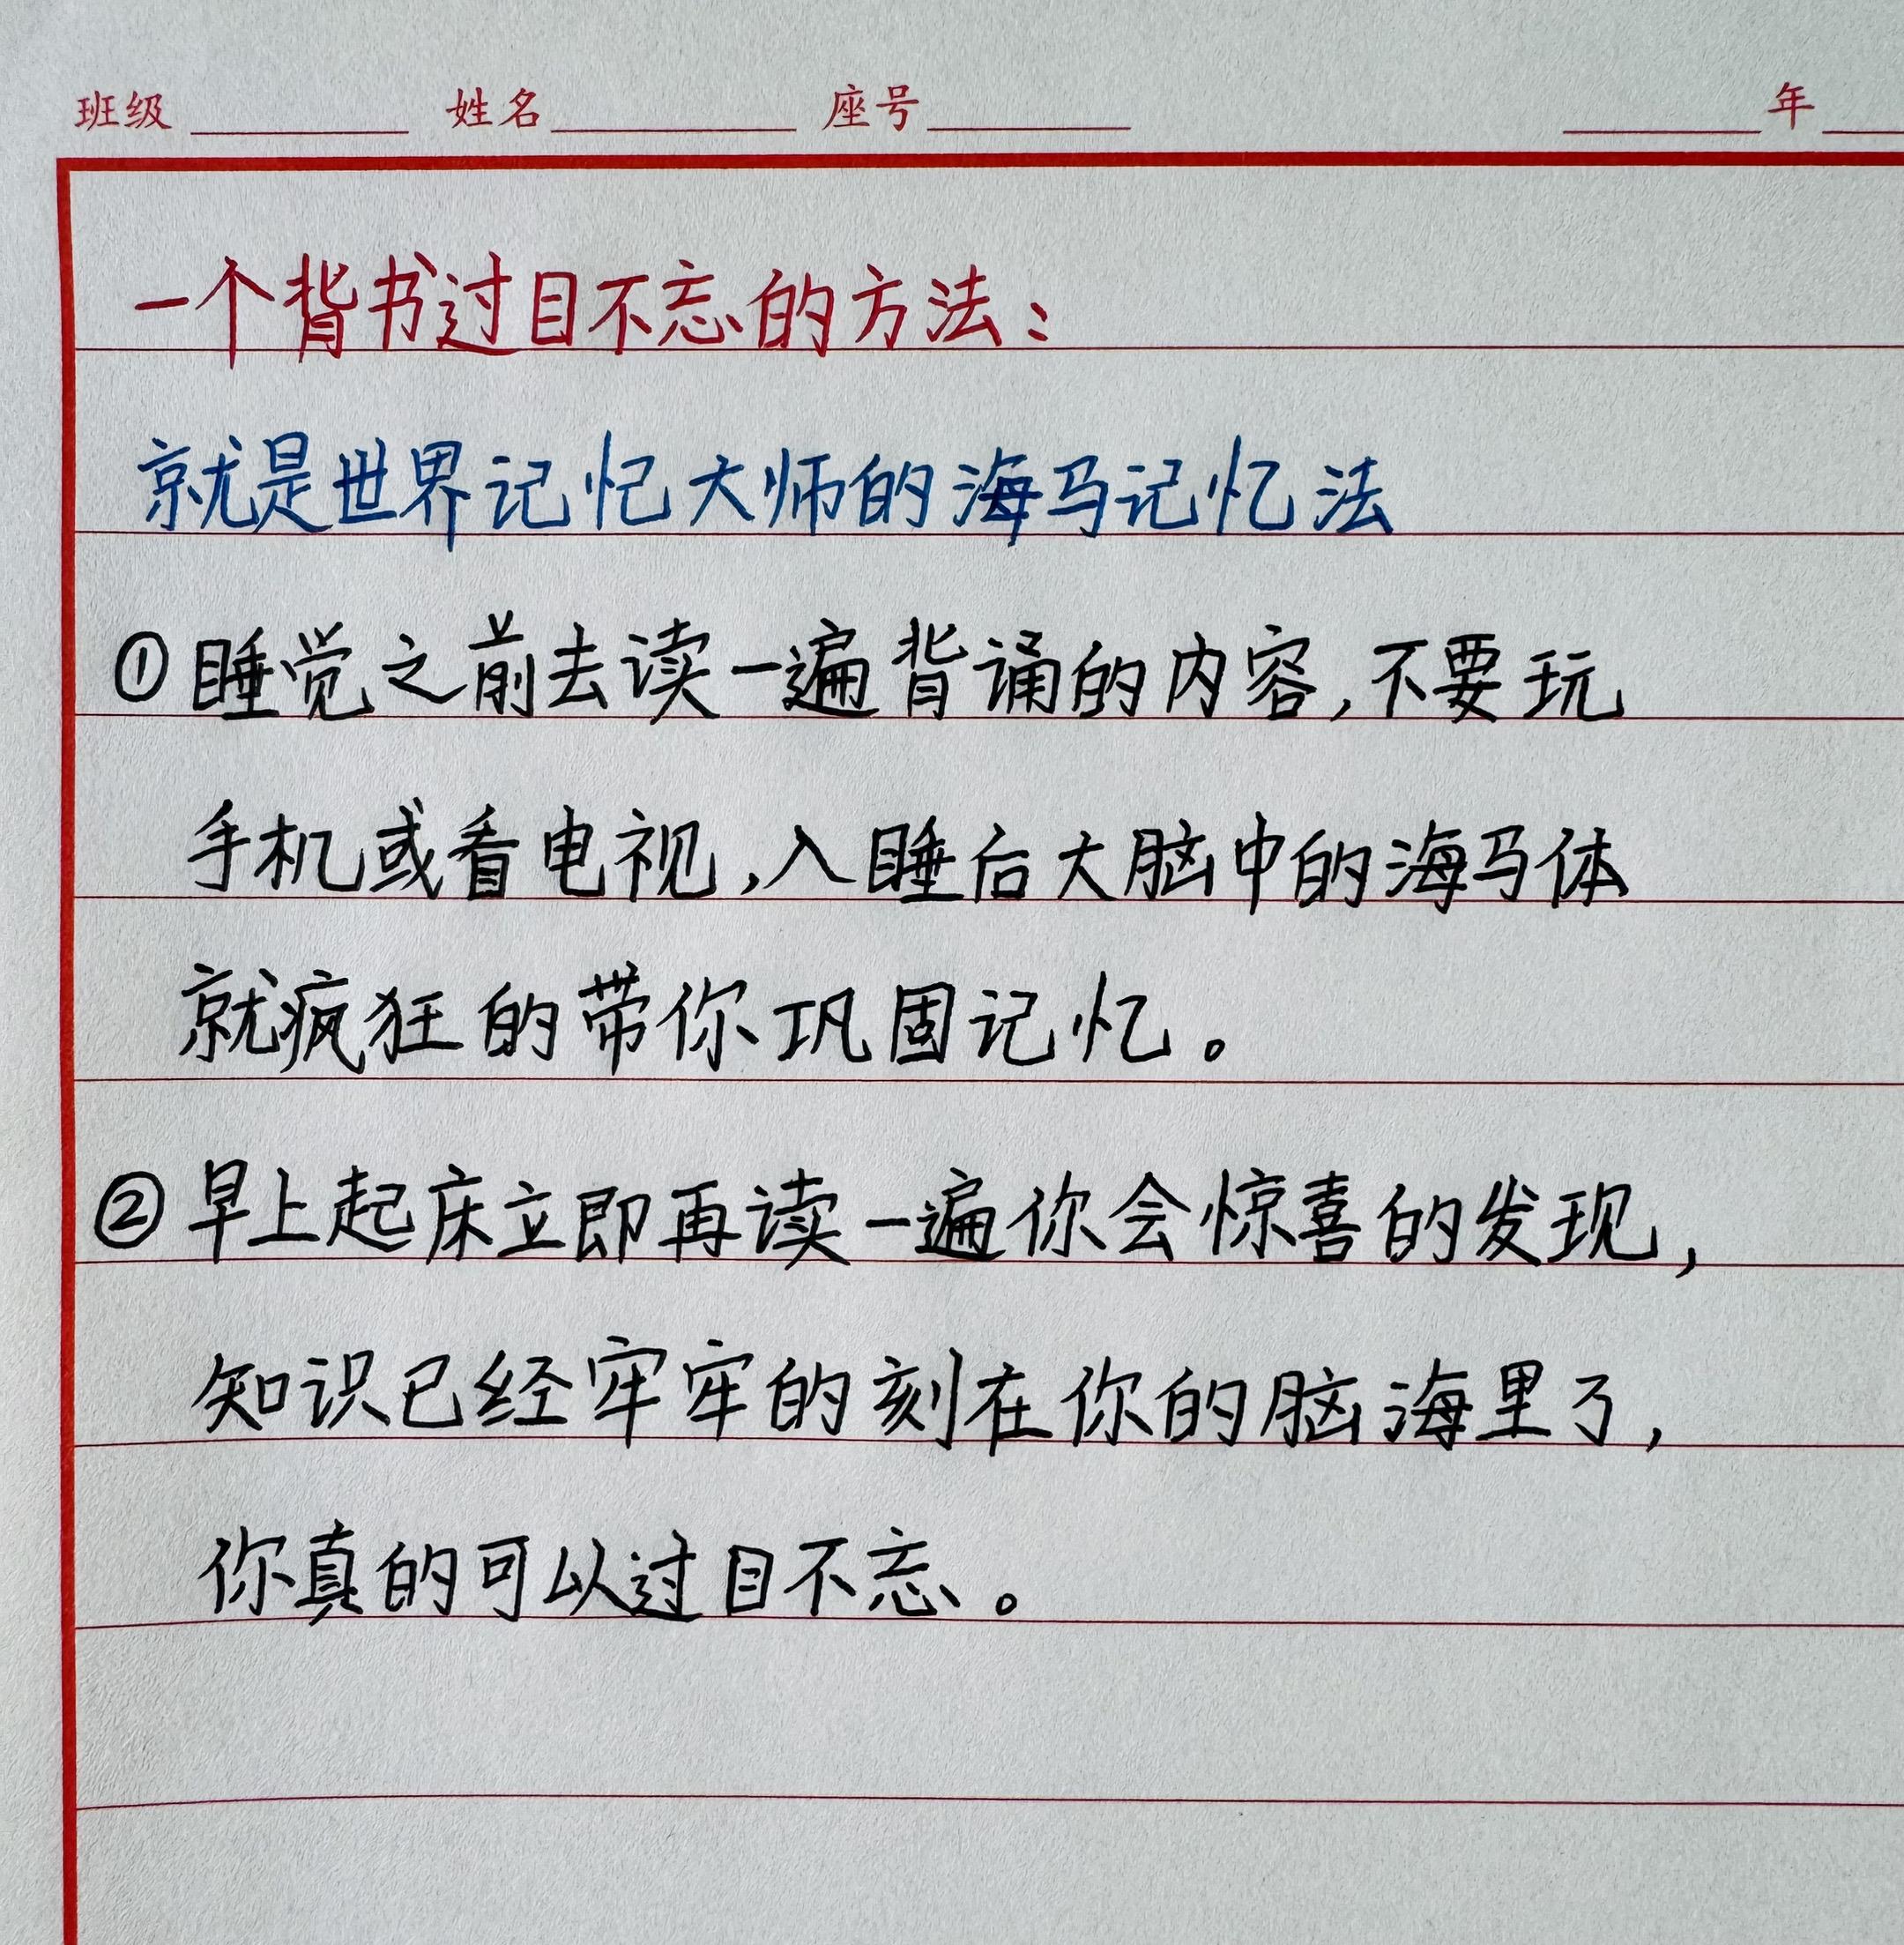 班级 姓名 座号 年
一个背书过目不忘的方法：
就是世界记忆大师的海马记忆法
①睡觉之前去读一遍背诵的内容,不要玩
手机或看电视,入睡后大脑中的海马体
就疯狂的带你巩固记忆。
②早上起床立即再读一遍你会惊喜的发现,
知识已经牢牢的刻在你的脑海里了,
你真的可以过目不忘。